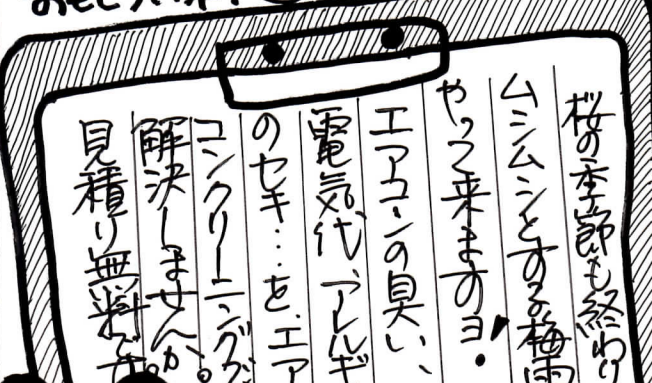 桜の季節も終わり
ムシムシとする梅雨
やって来ますヨ!
エアコンの臭い、
電気代、アレルギ
のセキ…を、エア
コンクリーニングで
解決しませんか。
見積り無料です。